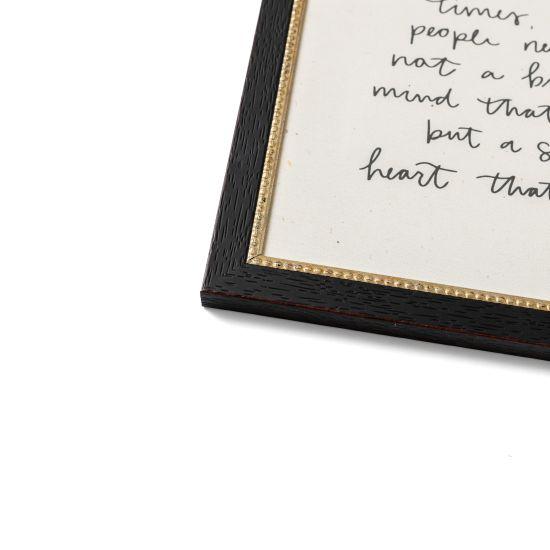 times,
people ne
not a b
mind that
but a s
heart that